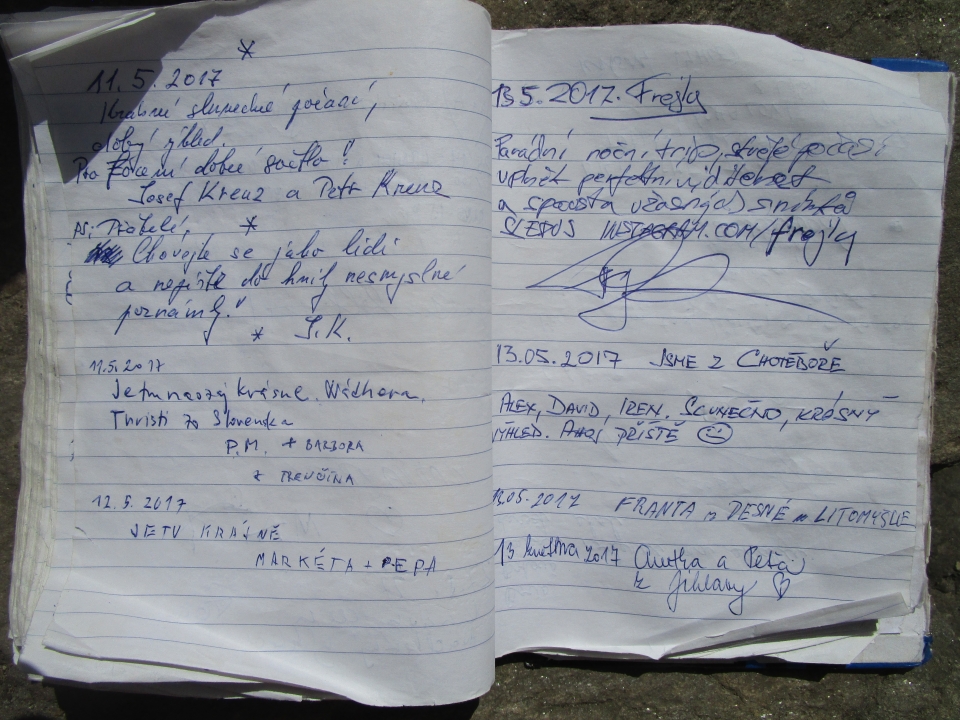 11.5.2017
Krásné slunečné počasí,
dobrý výhled.
Pro focení dobré světlo!
Josef Krenz a Petr Krenz
Přátelé,
Chovejte se jako lidi
a nepište do knihy nesmyslné
poznámky."
J.K.
11.5.2017
Je tu naozaj krásne. Nádhera.
Turisti zo Slovenska
P.M. + BARBORA
z TRENČÍNA
12.5.2017
JE TU KRÁSNĚ
MARKÉTA + PEPA
13.5.2017. Frejly
Parádní noční trip, skvělé počasí
úplněk perfektní viditelnost
a spousta úžasných snímků
INSTAGRAM.COM/frejly
13.05.2017 JSME Z CHOTĚBOŘE
ALEX, DAVID, IREN. SLUNEČNO, KRÁSNÝ
VÝHLED. AHOJ PŘÍŠTĚ
13.05.2017 FRANTA DESNÉ LITOMYŠLE
13 května 2017 a Peťa
z Jihlavy